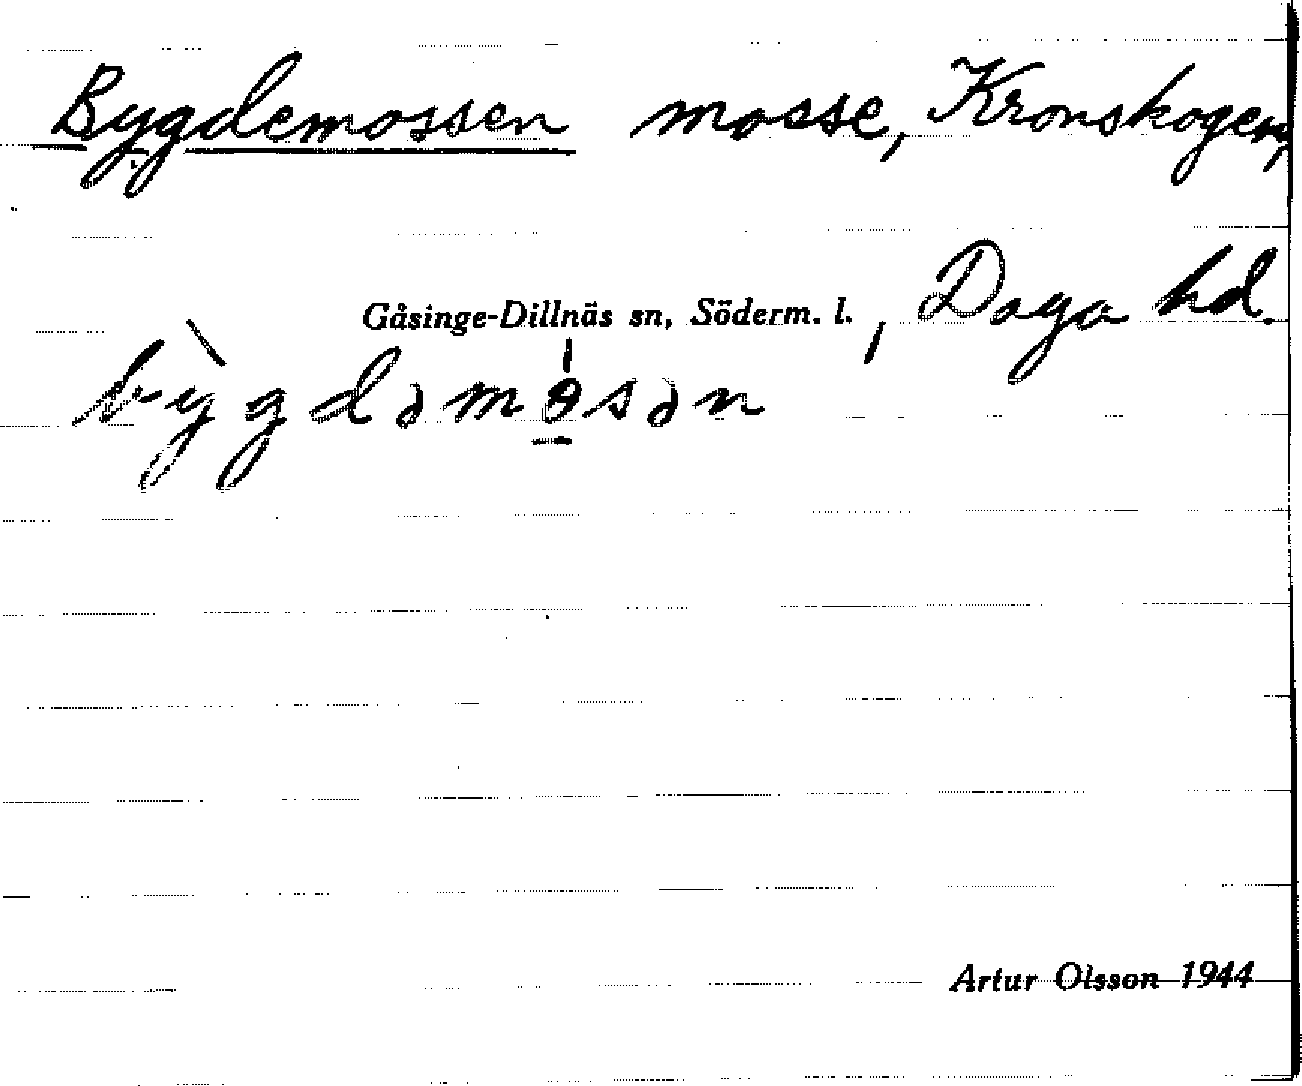 Bygdemossen mosse, Kronskogen,
Gåsinge-Dillnäs sn, Söderm. l., Daga hd.
bỳgdəmo̲̍sən
Artur Olsson 1944